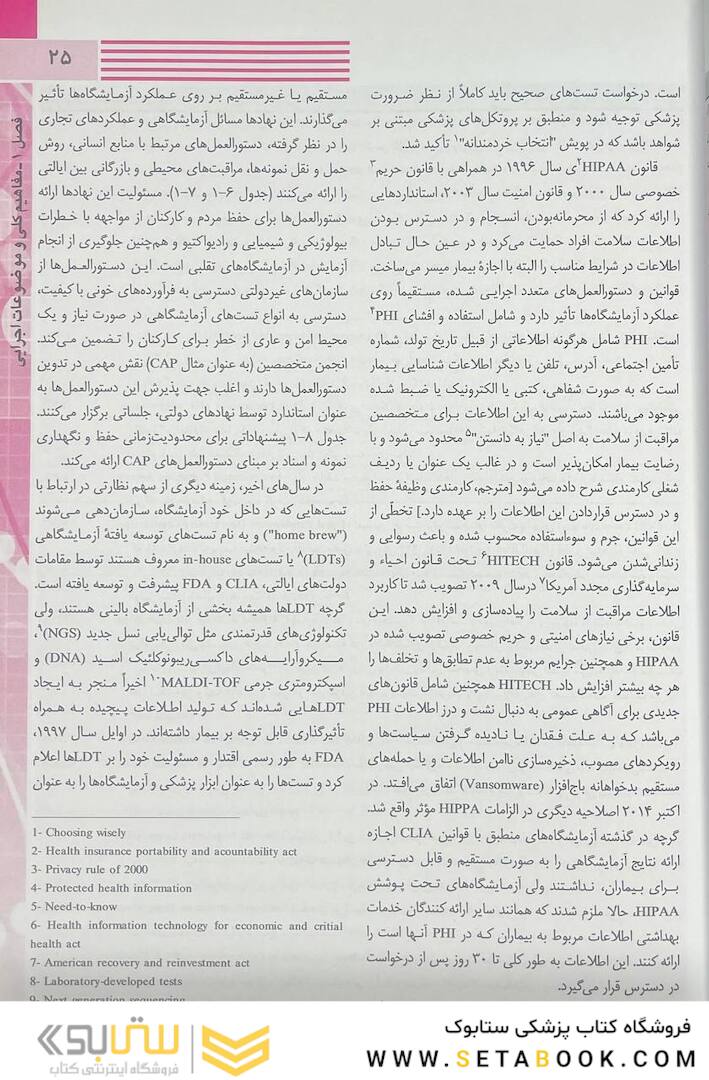 ۲۵
فصل ۱ ـ مفاهیم کلی و موضوعات اجرایی
است. درخواست تست‌های صحیح باید کاملاً از نظر ضرورت
پزشکی توجیه شود و منطبق بر پروتکل‌های پزشکی مبتنی بر
شواهد باشد که در پویش "انتخاب خردمندانه"۱ تأکید شد.
قانون HIPAA۲ی سال ۱۹۹۶ در همراهی با قانون حریم۳
خصوصی سال ۲۰۰۰ و قانون امنیت سال ۲۰۰۳، استانداردهایی
را ارائه کرد که از محرمانه‌بودن، انسجام و در دسترس بودن
اطلاعات سلامت افراد حمایت می‌کرد و در عین حال تبادل
اطلاعات در شرایط مناسب را البته با اجازهٔ بیمار میسر می‌ساخت.
قوانین و دستورالعمل‌های متعدد اجرایی شده، مستقیماً روی
عملکرد آزمایشگاه‌ها تأثیر دارد و شامل استفاده و افشای PHI۴
است. PHI شامل هرگونه اطلاعاتی از قبیل تاریخ تولد، شماره
تأمین اجتماعی، آدرس، تلفن یا دیگر اطلاعات شناسایی بیمار
است که به صورت شفاهی، کتبی یا الکترونیک یا ضبط شده
موجود می‌باشند. دسترسی به این اطلاعات برای متخصصین
مراقبت از سلامت به اصل "نیاز به دانستن"۵ محدود می‌شود و با
رضایت بیمار امکان‌پذیر است و در غالب یک عنوان یا ردیف
شغلی کارمندی شرح داده می‌شود [مترجم، کارمندی وظیفهٔ حفظ
و در دسترس قراردادن این اطلاعات را بر عهده دارد.] تخطّی از
این قوانین، جرم و سوءاستفاده محسوب شده و باعث رسوایی و
زندانی‌شدن می‌شود. قانون HITECH۶ تحت قانون احیاء و
سرمایه‌گذاری مجدد آمریکا۷ درسال ۲۰۰۹ تصویب شد تا کاربرد
اطلاعات مراقبت از سلامت را پیاده‌سازی و افزایش دهد. این
قانون، برخی نیازهای امنیتی و حریم خصوصی تصویب شده در
HIPAA و همچنین جرایم مربوط به عدم تطابق‌ها و تخلف‌ها را
هر چه بیشتر افزایش داد. HITECH همچنین شامل قانون‌های
جدیدی برای آگاهی عمومی به دنبال نشت و درز اطلاعات PHI
می‌باشد که به علت فقدان یا نادیده گرفتن سیاست‌ها و
رویکردهای مصوب، ذخیره‌سازی ناامن اطلاعات و یا حمله‌های
مستقیم بدخواهانه باج‌افزار (Vansomware) اتفاق می‌افتد. در
اکتبر ۲۰۱۴ اصلاحیه دیگری در الزامات HIPPA مؤثر واقع شد.
گرچه در گذشته آزمایشگاه‌های منطبق با قوانین CLIA اجازه
ارائه نتایج آزمایشگاهی را به صورت مستقیم و قابل دسترسی
برای بیماران، نداشتند ولی آزمایشگاه‌های تحت پوشش
HIPAA، حالا ملزم شدند که همانند سایر ارائه کنندگان خدمات
بهداشتی اطلاعات مربوط به بیماران که در PHI آنها است را
ارائه کنند. این اطلاعات به طور کلی تا ۳۰ روز پس از درخواست
در دسترس قرار می‌گیرد.
مستقیم یا غیرمستقیم بر روی عملکرد آزمایشگاه‌ها تأثیر
می‌گذارند. این نهادها مسائل آزمایشگاهی و عملکردهای تجاری
را در نظر گرفته، دستورالعمل‌های مرتبط با منابع انسانی، روش
حمل و نقل نمونه‌ها، مراقبت‌های محیطی و بازرگانی بین ایالتی
را ارائه می‌کنند (جدول ۶-۱ و ۷-۱). مسئولیت این نهادها ارائه
دستورالعمل‌ها برای حفظ مردم و کارکنان از مواجهه با خطرات
بیولوژیکی و شیمیایی و رادیواکتیو و هم‌چنین جلوگیری از انجام
آزمایش در آزمایشگاه‌های تقلبی است. این دستورالعمل‌ها از
سازمان‌های غیردولتی دسترسی به فرآورده‌های خونی با کیفیت،
دسترسی به انواع تست‌های آزمایشگاهی در صورت نیاز و یک
محیط امن و عاری از خطر برای کارکنان را تضمین می‌کند.
انجمن متخصصین (به عنوان مثال CAP) نقش مهمی در تدوین
دستورالعمل‌ها دارند و اغلب جهت پذیرش این دستورالعمل‌ها به
عنوان استاندارد توسط نهادهای دولتی، جلساتی برگزار می‌کنند.
جدول ۸-۱ پیشنهاداتی برای محدودیت‌زمانی حفظ و نگهداری
نمونه و اسناد بر مبنای دستورالعمل‌های CAP ارائه می‌کند.
در سال‌های اخیر، زمینه دیگری از سهم نظارتی در ارتباط با
تست‌هایی که در داخل خود آزمایشگاه، سازمان‌دهی می‌شوند
("home brew") و به نام تست‌های توسعه یافتهٔ آزمایشگاهی
(LDTs)۸ یا تست‌های in-house معروف هستند توسط مقامات
دولت‌های ایالتی، CLIA و FDA پیشرفت و توسعه یافته است.
گرچه LDTها همیشه بخشی از آزمایشگاه بالینی هستند، ولی
تکنولوژی‌های قدرتمندی مثل توالی‌یابی نسل جدید (NGS)۹،
میکروآرایه‌های داکسی‌ریبونوکلئیک اسید (DNA) و
اسپکترومتری جرمی MALDI-TOF۱۰ اخیراً منجر به ایجاد
LDTهایی شده‌اند که تولید اطلاعات پیچیده به همراه
تأثیرگذاری قابل توجه بر بیمار داشته‌اند. در اوایل سال ۱۹۹۷،
FDA به طور رسمی اقتدار و مسئولیت خود را بر LDTها اعلام
کرد و تست‌ها را به عنوان ابزار پزشکی و آزمایشگاه‌ها را به عنوان
1- Choosing wisely
2- Health insurance portability and acountability act
3- Privacy rule of 2000
4- Protected health information
5- Need-to-know
6- Health information technology for economic and critial
health act
7- American recovery and reinvestment act
8- Laboratory-developed tests
9- Next generation sequencing
فروشگاه کتاب پزشکی ستابوک
WWW.SETABOOK.COM
ستابوک
فروشگاه اینترنتی کتاب